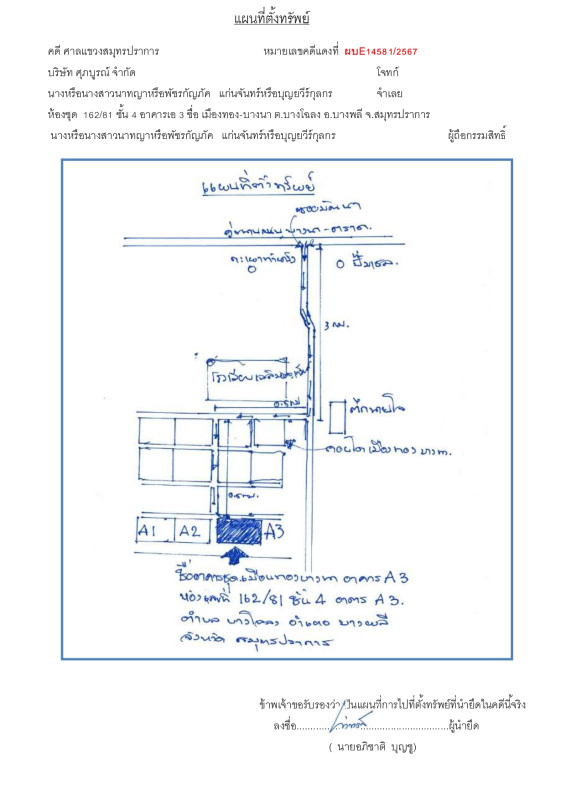 แผนที่ตั้งทรัพย์
คดี ศาลแขวงสมุทรปราการ หมายเลขคดีแดงที่ ผบE14581/2567
บริษัท ศุภบูรณ์ จำกัด โจทก์
นางหรือนางสาวนาทญาหรือพัชรกัญภัค แก่นจันทร์หรือบุญยวีร์กุลกร จำเลย
ห้องชุด 162/81 ชั้น 4 อาคารเอ 3 ชื่อ เมืองทอง-บางนา ต.บางโฉลง อ.บางพลี จ.สมุทรปราการ
นางหรือนางสาวนาทญาหรือพัชรกัญภัค แก่นจันทร์หรือบุญยวีร์กุลกร ผู้ถือกรรมสิทธิ์
แผนที่ตั้งทรัพย์
บางนา-ตราด.
3 กม.
โรงเรียน
ตึกนายใจ
คอนโดเมืองทองบางนา.
A1 A2 A3
ชื่ออาคารชุด.เมืองทองบางนา อาคาร A3
ห้องเลขที่ 162/81 ชั้น 4 อาคาร A3.
ตำบล บางโฉลง อำเภอ บางพลี
จังหวัด สมุทรปราการ
ข้าพเจ้าขอรับรองว่าเป็นแผนที่การไปที่ตั้งทรัพย์ที่นำยึดในคดีนี้จริง
ลงชื่อ................................................ผู้นำยึด
( นายอภิชาติ บุญชู)